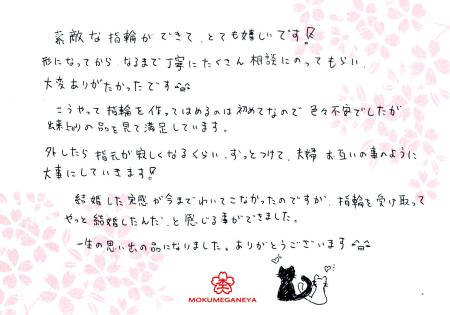 素敵な指輪ができて、とても嬉しいです!
形になってから、なるまで丁寧にたくさん相談にのってもらい、
大変ありがたかったです
こうやって指輪を作ってはめるのは初めてなので色々不安でしたが
出来上がりの品を見て満足しています。
外したら指元が寂しくなるくらい、ずっとつけて、夫婦お互いの事のように
大事にしていきます!
結婚した実感が今までわいてこなかったのですが、指輪を受け取って
やっと結婚したんだ、と感じる事ができました。
一生の思い出の品になりました。ありがとうございます
MOKUMEGANEYA